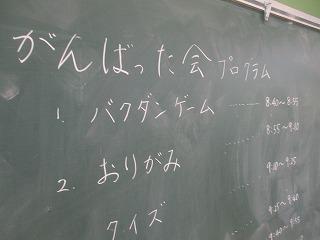 がんばった会 プログラム
1. バクダンゲーム ……… 8:40〜8:55
8:55〜9:10
2. おりがみ
9:10〜9:25
クイズ
9:25〜9:40